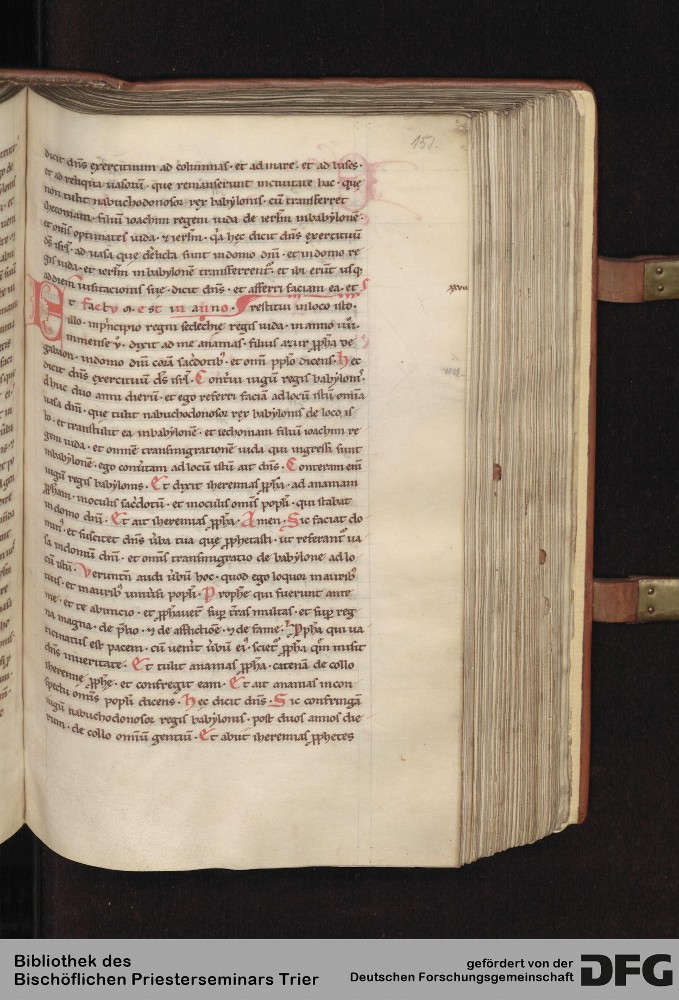 151.
dicit dn̄s exercituum ad columnas · et ad mare · et ad bases ·
et ad reliqua uasorū · que remanserunt in ciuitate hac · que
non tulit nabuchodonosor rex babylonis · cū transferret
iechoniam · filiū ioachim regem iuda de ierl̄m in babylonē ·
et om̄s optimates iuda · ⁊ ierl̄m · q̄a hec dicit dn̄s exercituū
dś isrl̄ · ad uasa que derelicta sunt in domo dn̄i · et in domo re
gis iuda · et ierl̄m in babylonē transferrent᷒ · et ibi erūt usq;
ad diem uisitacionis sue · dicit dn̄s · et afferri faciam ea · et
Et factū est in anno · restitui in loco isto ·
xxvii
illo · in p̄ncipio regni sedechie regis iuda · in anno iiii ·
in mense v · dixit ad me ananias · filius azur p̄pha de
gabaon · in domo dn̄i corā sacdotib᷒ · et omni pplo dicens · Hec
dicit dn̄s exercituū dś isrl̄ · Contriui iugū regis babylonis ·
adhuc duo anni dierū · et ego referri faciā ad locū istū omīa
uasa dn̄i · que tulit nabuchodonosor rex babylonis de loco is
to · et transtulit ea in babylonē · et iechoniam filiū ioachim re
gem iuda · et omnē transmigrationē iuda qui ingressi sunt
in babylonē · ego conūtam ad locū istū ait dn̄s · Conteram eni
iugū regis babylonis · Et dixit iheremias p̄pha · ad ananiam
p̄pham · in oculis sacdotū · et in oculis om̄s popli · qui stabat
in domo dn̄i · Et ait iheremias p̄pha · Amen · Sic faciat do
min᷒ · et suscitet dn̄s ūba tua que p̄phetasti · ut referant᷒ ua
sa in domū dn̄i · et om̄s transmigratio de babylone ad lo
cū istū · Verunt̄n audi ūbū hoc · quod ego loquor in aurib᷒
tuis · et in aurib᷒ uniūsi popli · Prophe qui fuerunt ante
me · et te ab inicio · et p̄phauer̄ sup t̄ras multas · et sup reg
na magna · de p̄lio · ⁊ de afflictiōe · ⁊ de fame · P̄pha qui ua
ticinatus est pacem · cū uen̄it ūbū ei᷒ · sciet᷒ p̄pha q̄m misit
dn̄s in ueritate · Et tulit ananias p̄pha · catenā de collo
iheremie p̄phe · et confregit eam · Et ait ananias in con
spectu om̄is popli dicens · Hec dicit dn̄s · Sic confringā
iugū nabuchodonosor regis babylonis · post duos annos die
rum · de collo omniū gentiū · Et abiit iheremias p̄phetes
Bibliothek des
Bischöflichen Priesterseminars Trier
gefördert von der
Deutschen Forschungsgemeinschaft
DFG